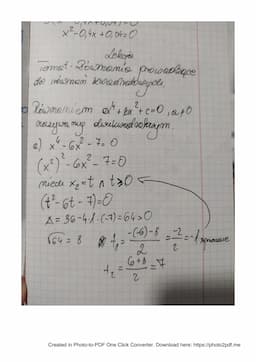 x²-0,4x+0,04=0
Lekcja
Temat: Równania prowadzące
do równań kwadratowych.
Równaniem ax⁴+bx²+c=0, a≠0
nazywamy dwukwadratowym.
a) x⁴-6x²-7=0
(x²)²-6x²-7=0
niech x²=t ∧ t≥0
(t²-6t-7)=0
Δ=36-4·1·(-7)=64>0
√64=8 t₁=-(-6)-8/2=-2/2=-1
t₂=6+8/2=7
Created in Photo-to-PDF One Click Converter. Download here: https://photo2pdf.me